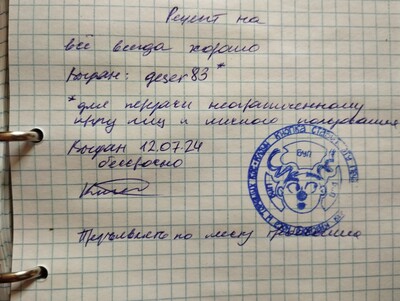 Рецепт на
всё всегда хорошо
Выдан: gezer83*
*для передачи неограниченному
кругу лиц и личного пользования
Выдан 12.07.24
бессрочно
БУП
Предъявлять по месту требования